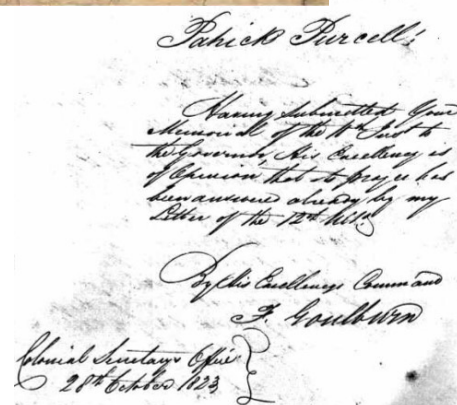 Patrick Purcell!
Having submitted Your
Memorial of the 11th Inst to
the Governor, His Excellency is
of Opinion that its prayer has
been answered already by my
Letter of the 12th Ulto
By His Excellencys Command
F. Goulburn
Colonial Secretarys Office
28th October 1823